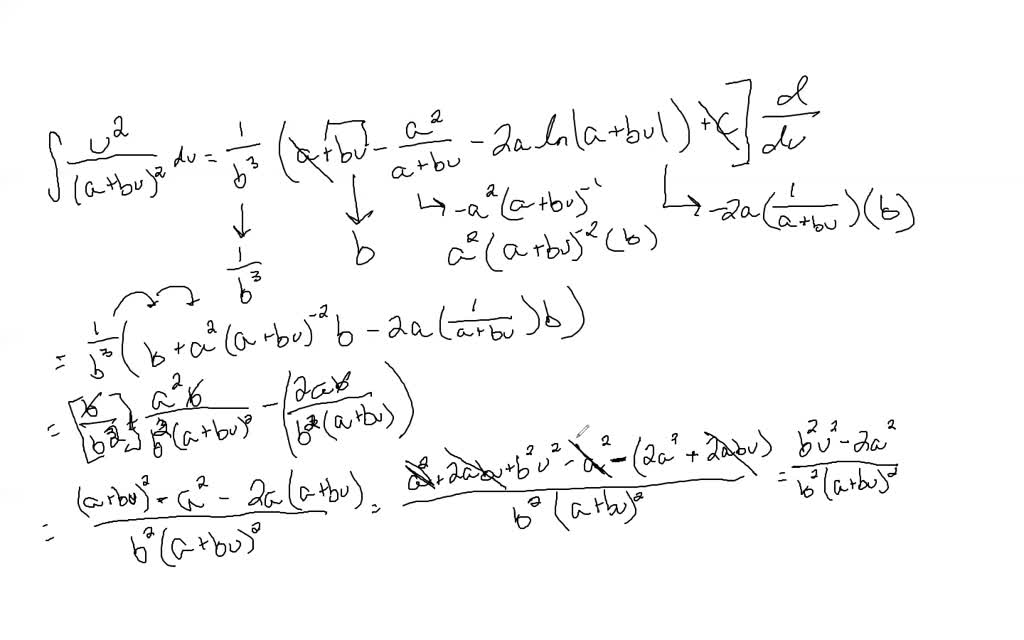 ∫ u²/(a+bu)² du = 1/b³ (a+bu - a²/(a+bu) - 2a ln|a+bu|) + C] d/du
↓ 1/b³ ↓ b ↳ -a²(a+bu)⁻¹ ↳ -2a(1/(a+bu))(b)
a²(a+bu)⁻²(b)
= 1/b³ (b + a²(a+bu)⁻² b - 2a(1/(a+bu))b)
= [b/b³] + a²b/(b³(a+bu)²) - (2ab/(b³(a+bu)))
= ((a+bu)² - a² - 2a(a+bu))/(b²(a+bu)²) = (a² + 2abu + b²u² - a² - (2a² + 2abu))/(b²(a+bu)²) = (b²u² - 2a²)/(b²(a+bu)²)